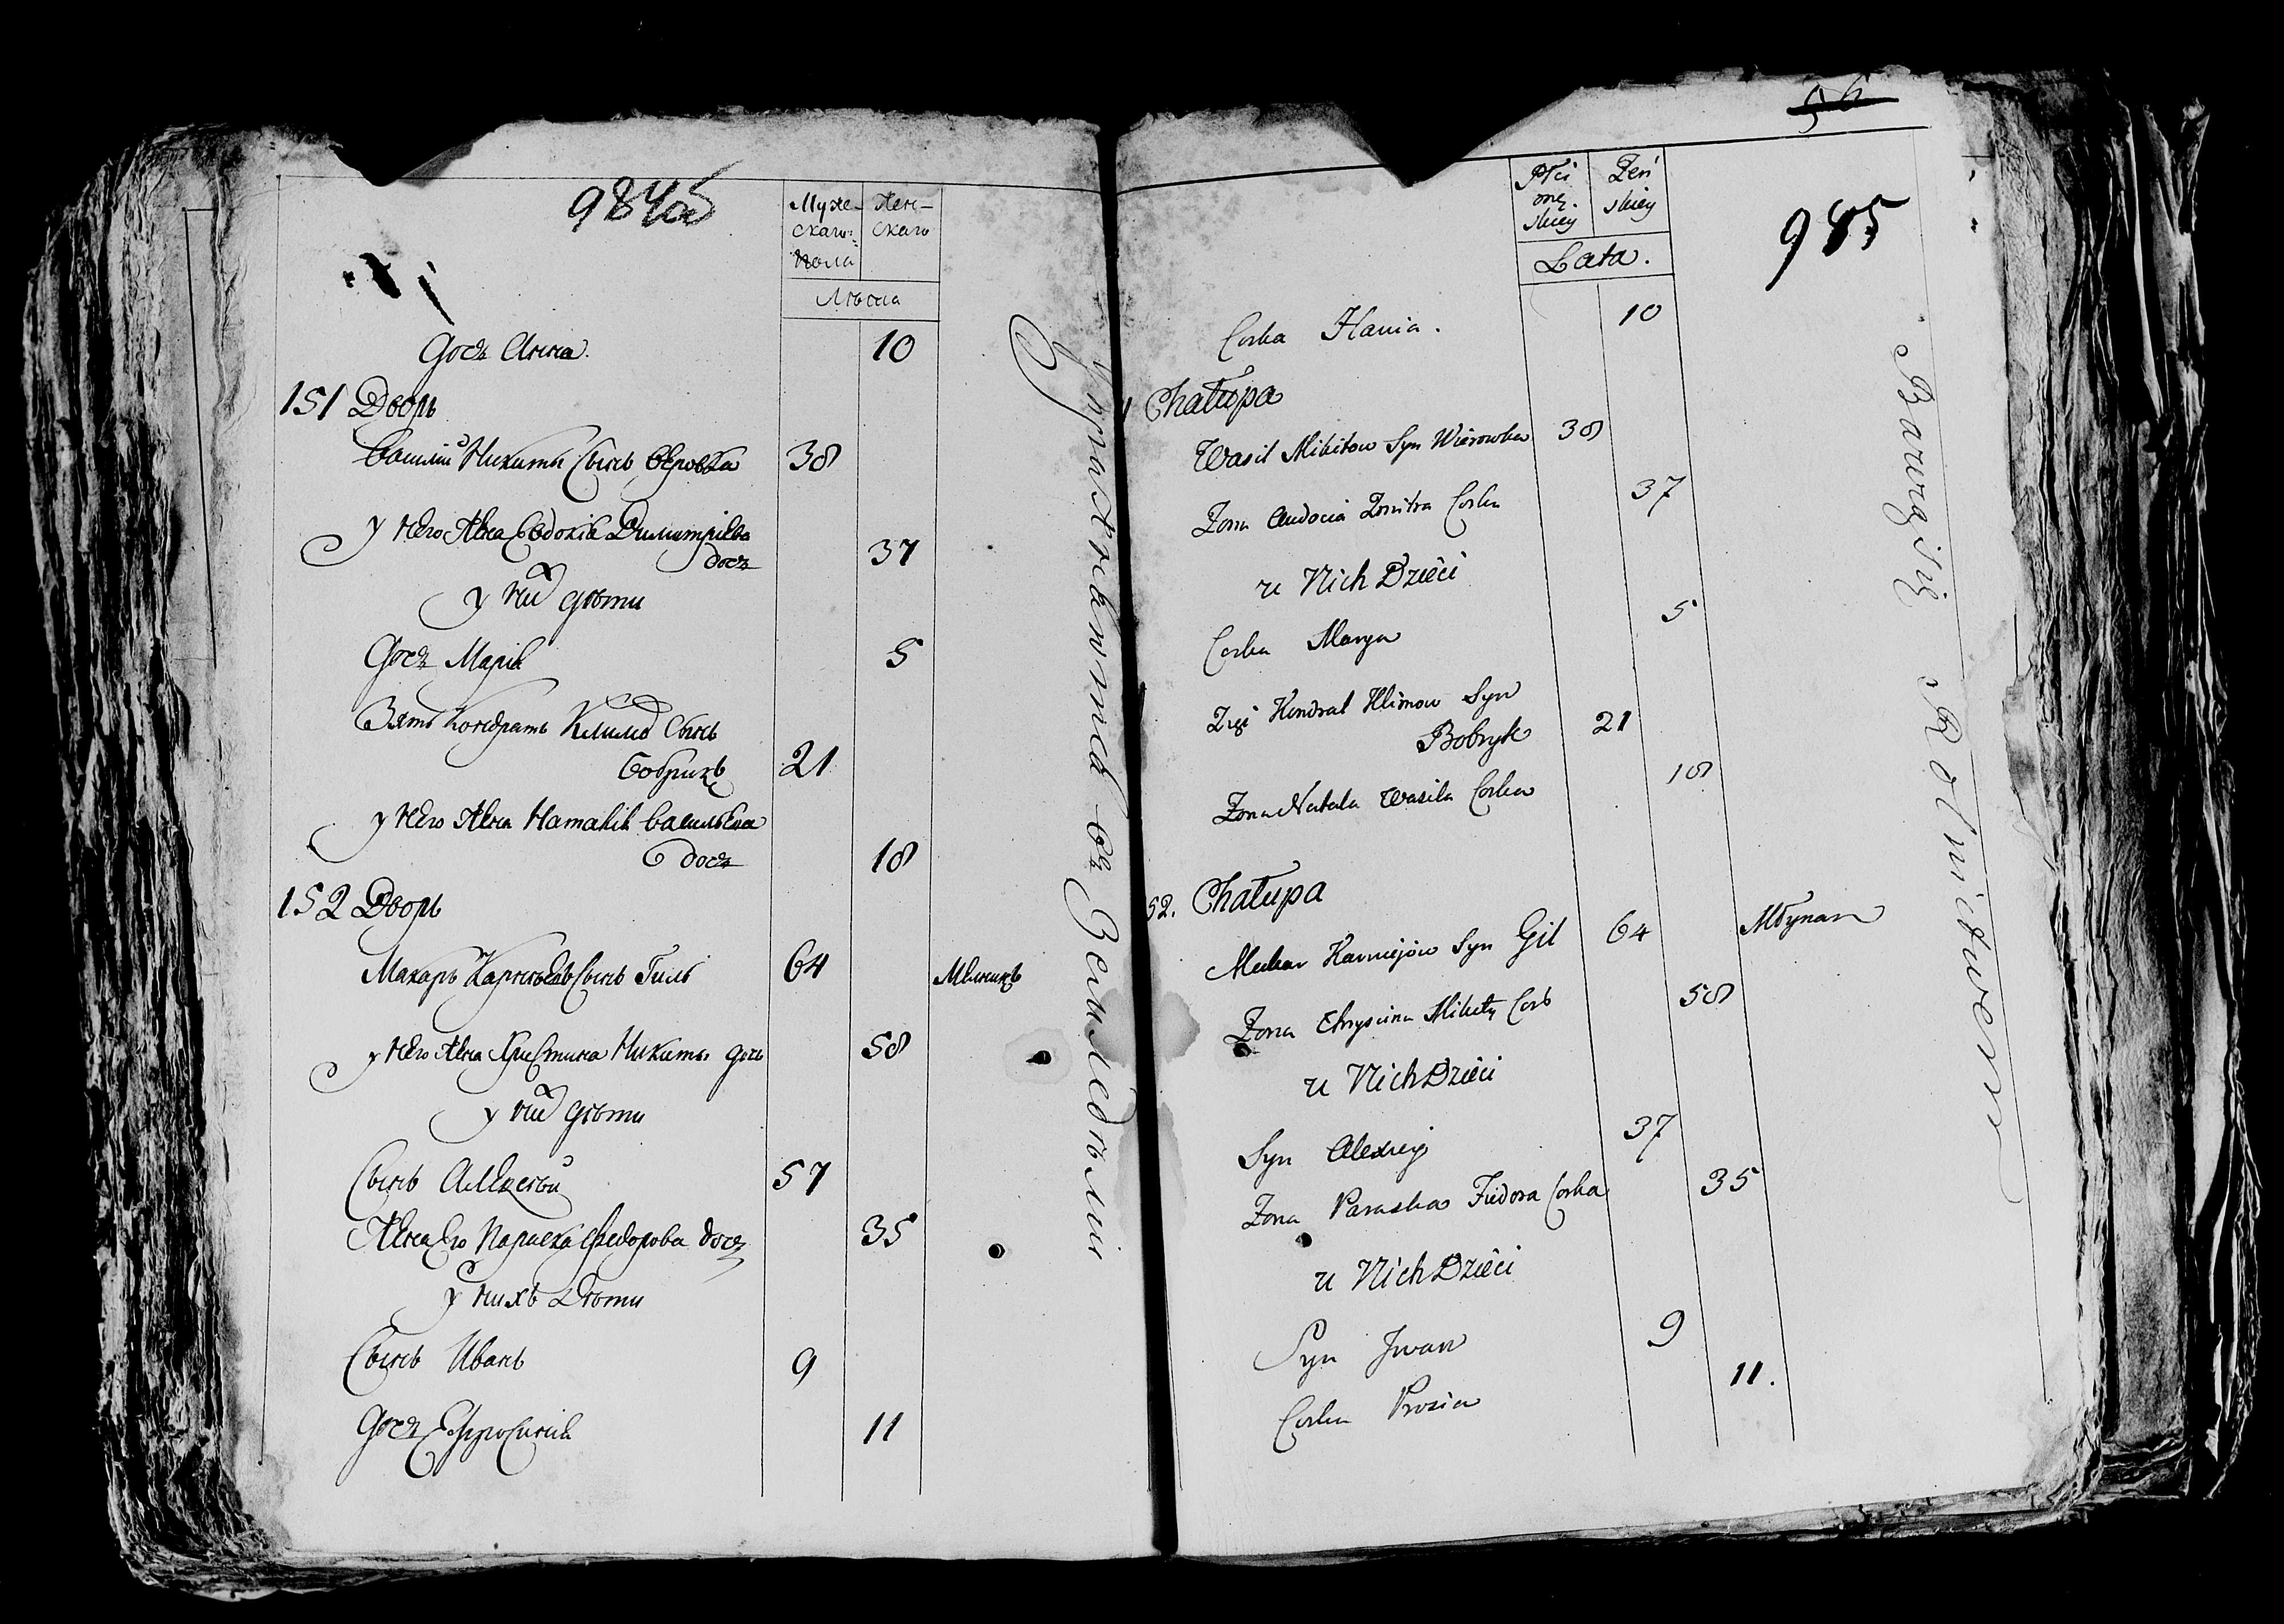 984об
Муже-
скаго
пола
Жен-
скаго
Лѣта
Дочь Анна
10
151 Дворъ
Василий Никиты Сынъ Вѣровка
38
у него Жена Евдокія Димитріева
дочь
37
у них дѣти
Дочь Марія
5
Зять Кондратъ Климов Сынъ
Бобрикъ
21
у него Жена Наталія Васильева
дочь
18
152 Дворъ
Макаръ Карнѣевъ Сынъ Гиль
64
Мѣлникъ
у него Жена Христина Никиты дочь
58
у них дѣти
Сынъ Алексѣй
57
Жена Его Параска Федорова дочь
35
у нихъ Дѣти
Сынъ Иванъ
9
Дочь Ефросинія
11
Упражняютса въ Земледѣлии
56
985
Płci
mę.
skiey
Żeń
skiey
Lata.
Corka Hania.
10
Chałupa
Wasil Mikitow Syn Wierowka
38
Żona Audocia Dmitra Corka
37
u Nich Dzieci
Corka Marya
5
Zięć Kondrat Klimow Syn
Bobryk
21
Żona Natala Wasila Corka
18
52. Chałupa
Makar Karniejow Syn Gil
64
Młynarz
Żona Chryscina Mikity Cork
58
u Nich Dzieci
Syn Alexiey
37
Żona Paraska Fiedora Corka
35
u Nich Dzieci
Syn Jwan
9
Corka Prosia
11.
Bawią się Rolnictwem